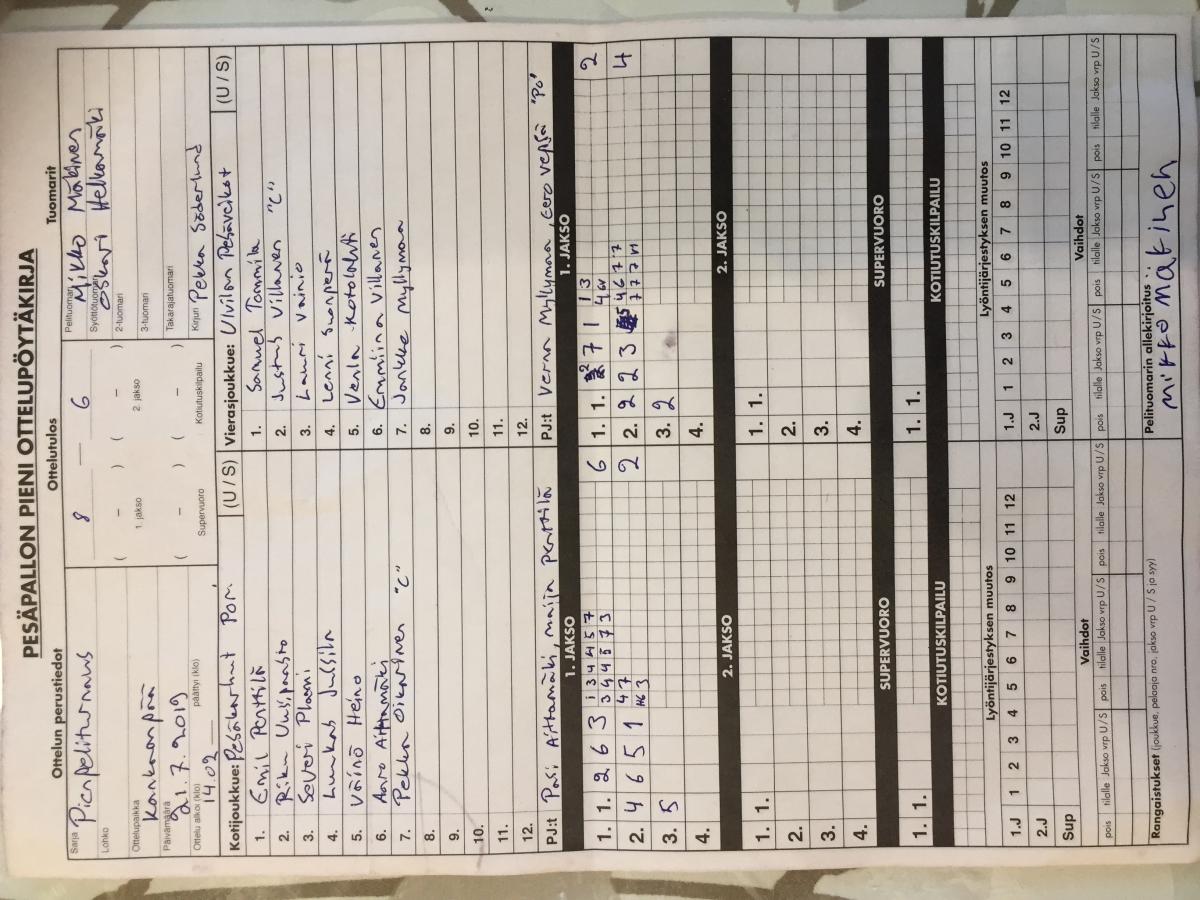 PESÄPALLON PIENI OTTELUPÖYTÄKIRJA
Ottelun perustiedot
Ottelutulos
Tuomarit
Sarja Pienpeliturnaus
Lohko
Ottelupaikka Kankaanpää
Päivämäärä 21.7.2019
Ottelu alkoi (klo) päättyi (klo)
14.02
8 — 6
( – ) ( – )
1. jakso 2. jakso
( – ) ( – )
Supervuoro Kotiutuskilpailu
Pelituomari Mikko Mätinen
Syöttötuomari Oskari Helkamäki
2-tuomari
3-tuomari
Takarajatuomari
Kirjuri Pekka Söderlund
Kotijoukkue: Pesäkarhut Pori (U / S)
1. Emil Penttilä
2. Riku Uusipaasto
3. Saveri Plami
4. Luukas Jussila
5. Väinö Heino
6. Aaro Aittamäki
7. Pekka Oikarinen "C"
8.
9.
10.
11.
12.
PJ:t Pasi Aittamäki, Maija Penttilä
Vierasjoukkue: Ulvilan Pesäveikot (U / S)
1. Samuel Tommila
2. Justus Villanen "C"
3. Lauri Vainio
4. Lenni Suonperä
5. Venla Kotolahti
6. Emmiina Villanen
7. Jarkko Myllymaa
8.
9.
10.
11.
12.
PJ:t Verna Myllymaa, Eero Vepsä "PO"
1. JAKSO
1. JAKSO
1. 1. 2 6 3 1 3 4 4 5 7 6
3 4 4 5 7 3
2. 4 6 5 1 4 7 2
3. 5
4.
1. 1. 2 7 1 1 3 2
2. 2 2 3 5 4 6 7 7 4
3. 2
4.
2. JAKSO
2. JAKSO
1. 1.
2.
3.
4.
1. 1.
2.
3.
4.
SUPERVUORO
SUPERVUORO
1. 1.
1. 1.
KOTIUTUSKILPAILU
KOTIUTUSKILPAILU
Lyöntijärjestyksen muutos
Lyöntijärjestyksen muutos
1.J 1 2 3 4 5 6 7 8 9 10 11 12
2.J
Sup
1.J 1 2 3 4 5 6 7 8 9 10 11 12
2.J
Sup
Vaihdot
Vaihdot
pois tilalle Jakso vrp U / S pois tilalle Jakso vrp U / S pois tilalle Jakso vrp U / S
pois tilalle Jakso vrp U / S pois tilalle Jakso vrp U / S pois tilalle Jakso vrp U / S
Rangaistukset (joukkue, pelaaja nro, jakso vrp U / S ja syy)
Pelituomarin allekirjoitus:
Mikko Mätinen